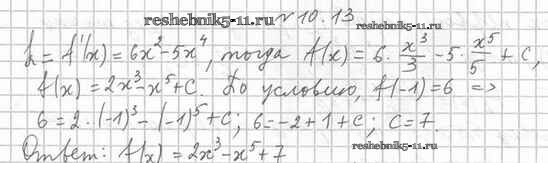 reshebnik5-11.ru № 10.13
k = f'(x) = 6x² - 5x⁴, тогда f(x) = 6 · x³/3 - 5 · x⁵/5 + C,
f(x) = 2x³ - x⁵ + C. По условию, f(-1) = 6 =>
6 = 2 · (-1)³ - (-1)⁵ + C; 6 = -2 + 1 + C; C = 7.
Ответ: f(x) = 2x³ - x⁵ + 7 reshebnik5-11.ru